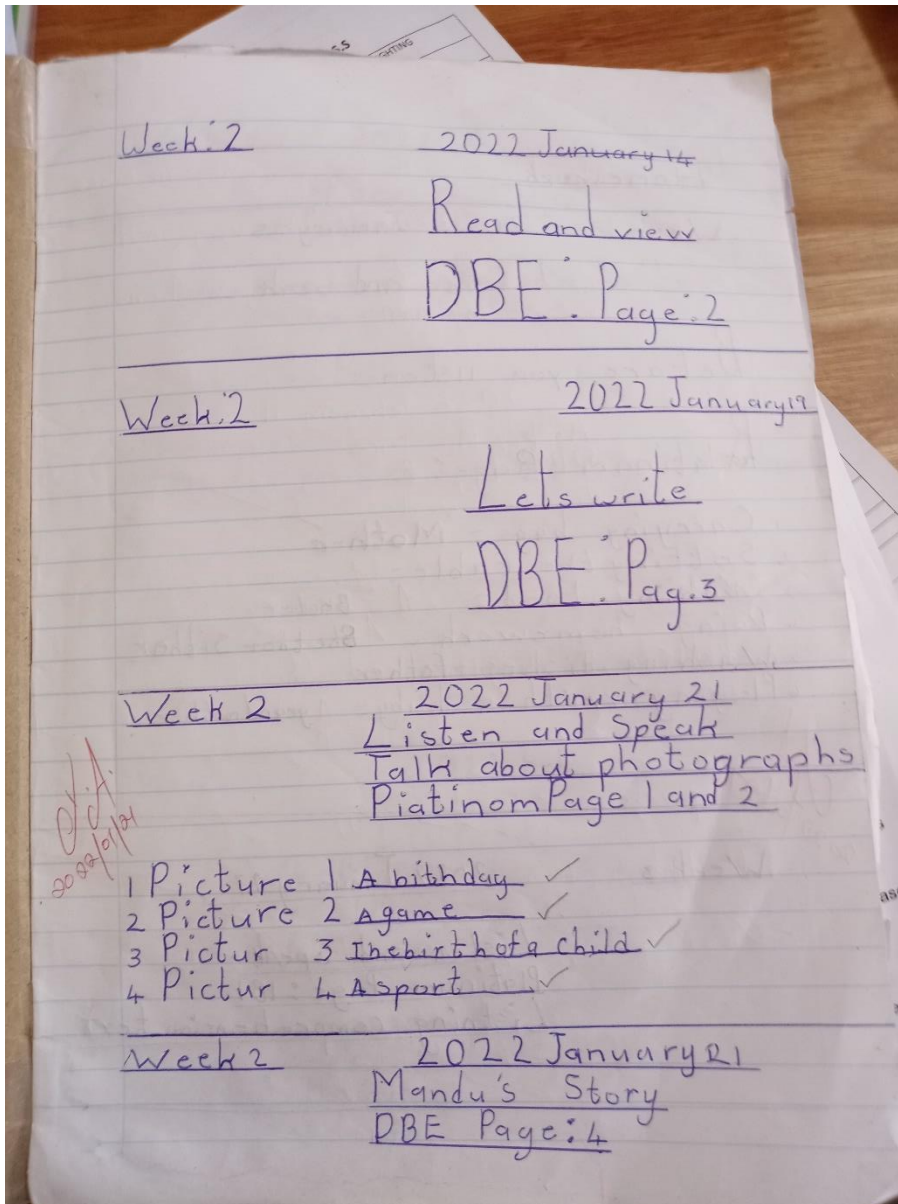 GHTING
Week: 2 2022 January 14
Read and view
DBE: Page: 2
Week: 2 2022 January 19
Lets write
DBE: Pag. 3
Week 2 2022 January 21
Listen and Speak
Talk about photographs
Piatinom Page 1 and 2
2022/01/21
1 Picture 1 A bithday
2 Picture 2 A game
3 Pictur 3 The birth of a child
4 Pictur 4 A sport
Week 2 2022 January 21
Mandu's Story
DBE Page: 4